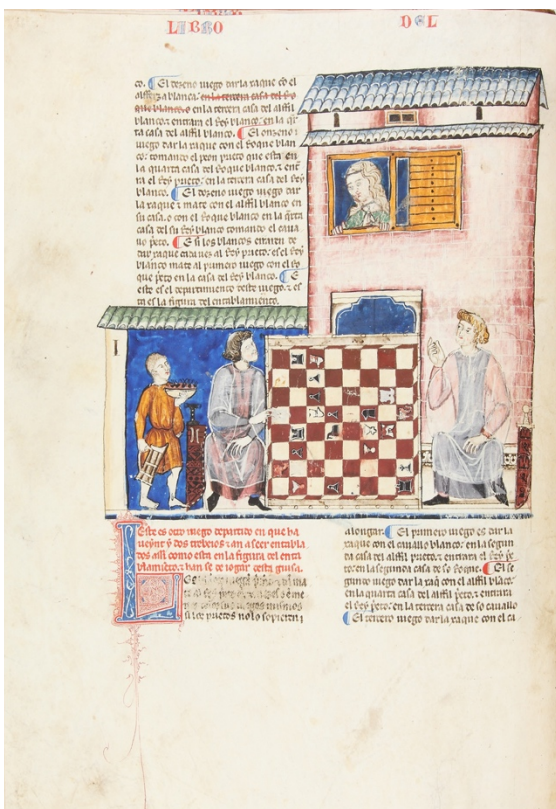 LIBRO DEL
co. El dozeno iuego dar la xaque co el
alferza blanca. en la tercera casa del Rey
que blanco. o en la tercera casa del alffil
blanco. entrara el Rey blanco. en la qr
ta casa del alffil blanco. El onzeno
iuego dar la xaque con el Roque blan
co. tomando el peon prieto que esta en
la quarta casa del Roque blanco. entra
ra el Rey prieto. en la tercera casa del Rey
blanco. El dozeno iuego dar
la xaque mate con el alffil blanco en
su casa. o con el Roque blanco en la qrta
casa del su Rey blanco tomando el caua
llo prieto. E si los blancos erraren de
dar xaques al Rey prieto. es el Rey
blanco mate al primero iuego con el Ro
que prieto en la casa del Rey blanco. E
este es el departimiento deste iuego. es
ta es la figura del entablamiento.
Este es otro iuego departido en que ha
ueynt dos trebeios an a seer entabla
dos assi como esta en la figura del enta
blamiento. han se de iogar desta guisa.
los prietos no lo sopieren
alongar. El primero iuego es dar la
xaque con el cauallo blanco. en la segun
da casa del alffil prieto. entrara el Rey
prieto. en la segunda casa de so Roque. El se
gundo iuego dar la xaq con el alffil blanco.
en la quarta casa del alffil prieto. entrara
el Rey prieto. en la tercera casa de so cauallo
El tercero iuego dar la xaque con el ca